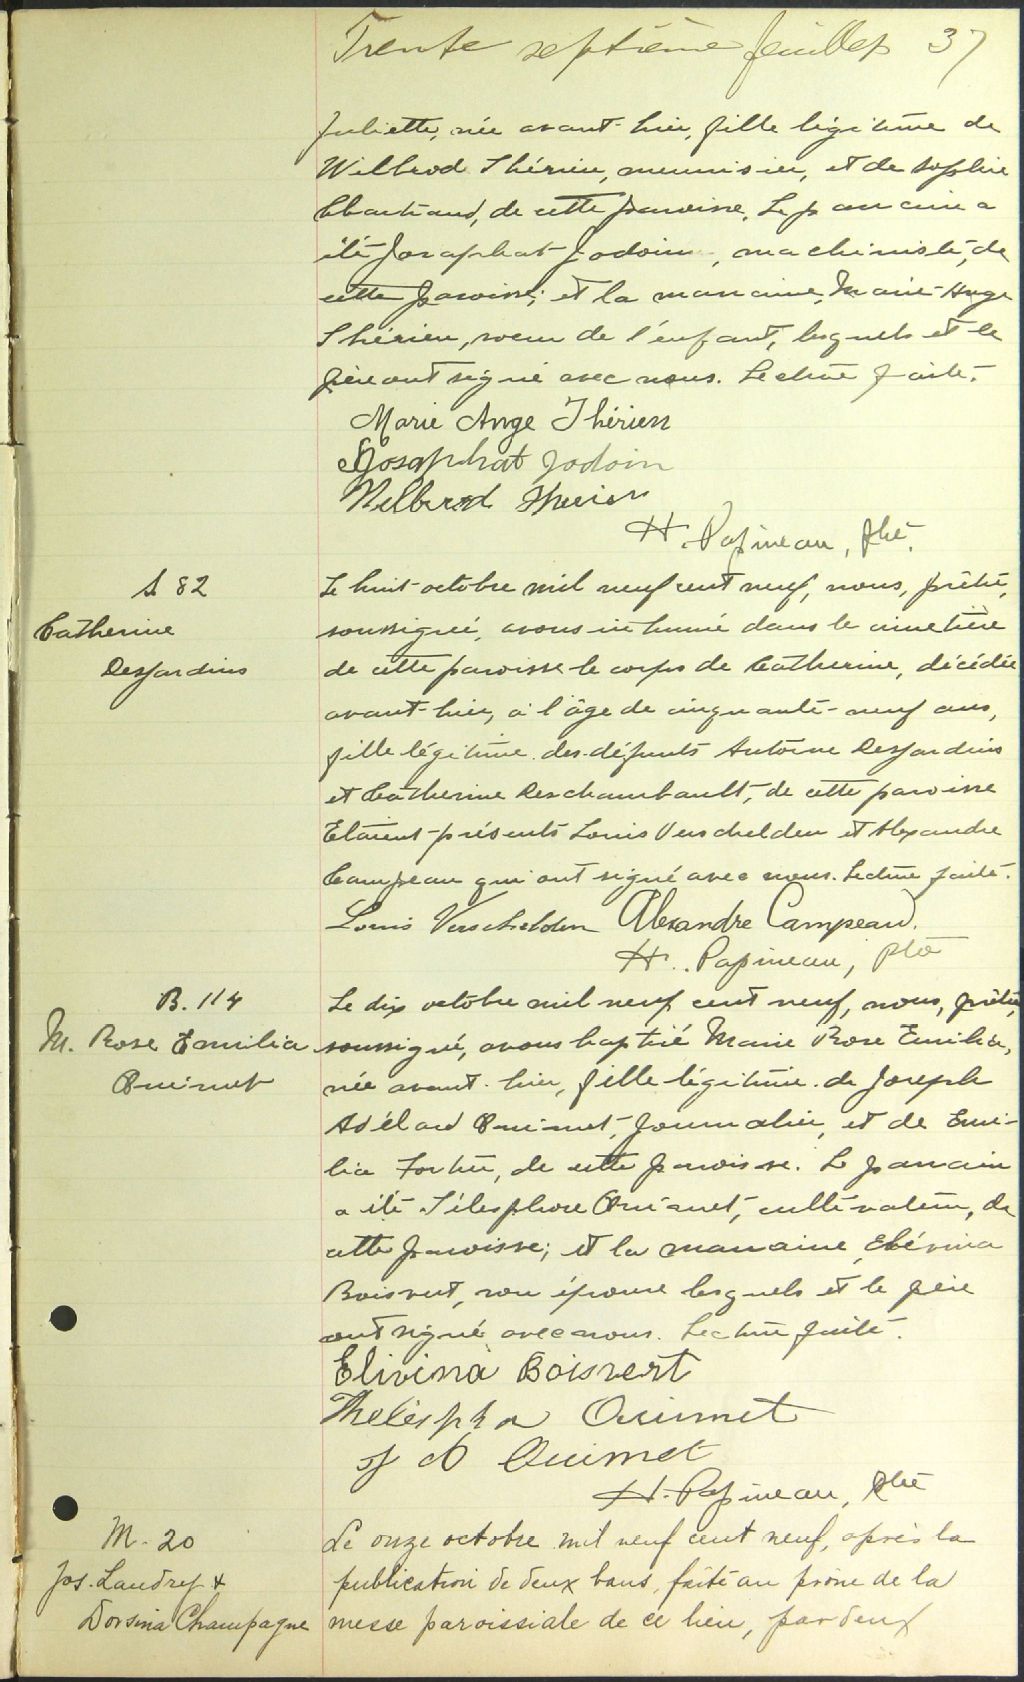 Trente septième feuillet 37
Juliette, née avant-hier, fille légitime de
Wilbrod Thérien, menuisier, et de Sophie
Chartrand, de cette paroisse. Le parrain a
été Josaphat Jodoin, machiniste, de
cette paroisse; et la marraine, Marie-Ange
Thérien, soeur de l'enfant, lesquels et le
père ont signé avec nous. Lecture faite.
Marie Ange Thérien
Josaphat Jodoin
Wilbrod Therien
H. Papineau, ptre.
S 82
Catherine
Desjardins
Le huit octobre mil neuf cent neuf, nous, prêtre,
soussigné, avons inhumé dans le cimetière
de cette paroisse le corps de Catherine, décédée
avant-hier, à l'âge de cinquante-neuf ans,
fille légitime des défunts Antoine Desjardins
et Catherine Deschambault, de cette paroisse
Etaient présents Louis Verschelden et Alexandre
Campeau qui ont signé avec nous. Lecture faite.
Louis Verschelden Alexandre Campeau.
H. Papineau, ptre
B. 114
M. Rose Emilia
Ouimet
Le dix octobre mil neuf cent neuf, nous, prêtre,
soussigné, avons baptisé Marie Rose Emilia,
née avant-hier, fille légitime de Joseph
Adélard Ouimet, journalier, et de Emi-
lia Fortier, de cette paroisse. Le parrain
a été Télesphore Ouimet, cultivateur, de
cette paroisse; et la marraine, Elvina
Boisvert, son épouse lesquels et le père
ont signé avec nous. Lecture faite.
Elivina Boisvert
Ouimet
J A Ouimet
H. Papineau, ptre
M. 20
Jos. Landry &
Dorsina Champagne
Le onze octobre mil neuf cent neuf, après la
publication de deux bans, faite au prône de la
messe paroissiale de ce lieu, par deux